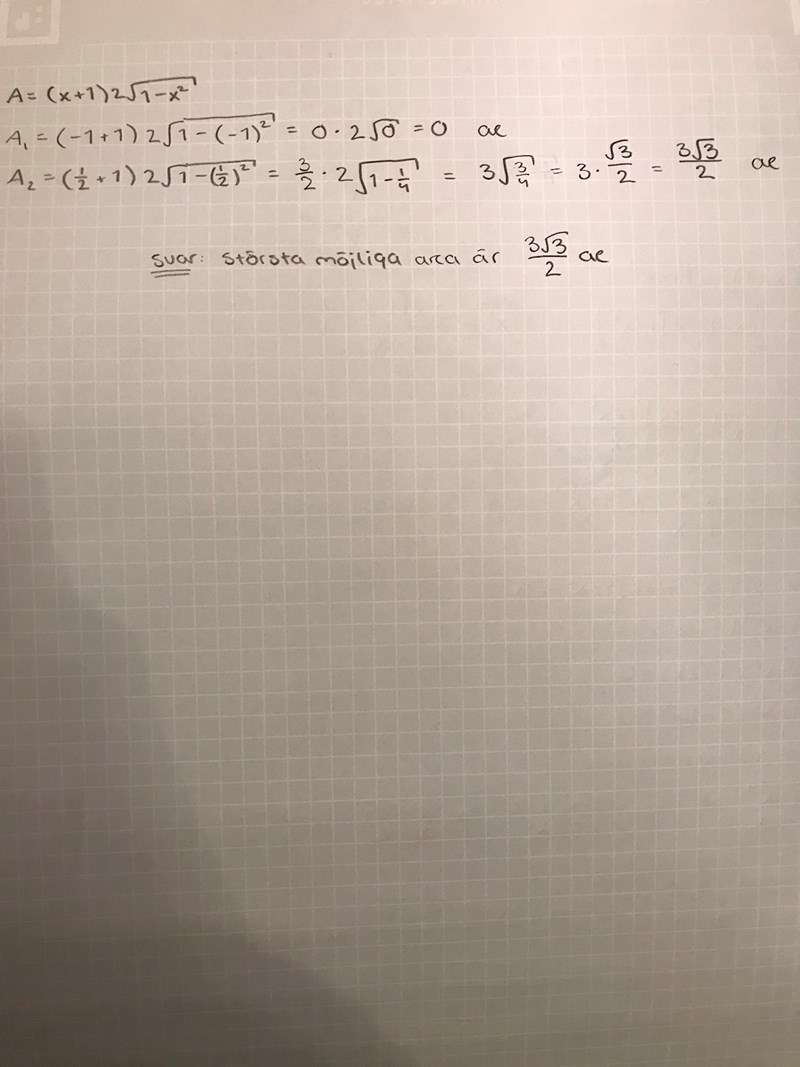 A = (x+1)2√(1-x²)
A₁ = (-1+1) 2√(1-(-1)²) = 0 · 2√0 = 0 ae
A₂ = (1/2 + 1) 2√(1-(1/2)²) = 3/2 · 2√(1-1/4) = 3√(3/4) = 3 · √3/2 = 3√3/2 ae
Svar: Största möjliga area är 3√3/2 ae